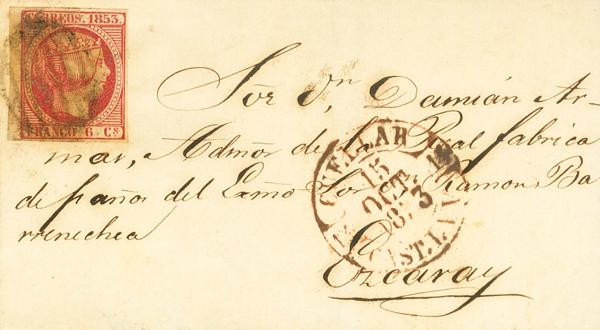 CORREOS. 1853.
FRANCO 6. Cs
Sor Dn Damián Ar-
mar, Admor de la Real fabrica
de paños del Exmo Sor Ramon Ba
rrenechea
Ezcaray
CUELLAR
15
OCT
1853
CAST. LA V.